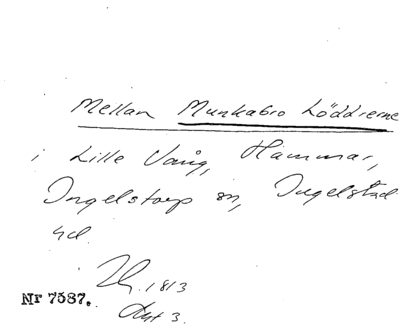 Mellan Munkabro Löddrerne
i Lille Vång, Hammar,
Ingelstorp sn, Ingelstad
hd.
1813
Akt 3.
Nr 7587.